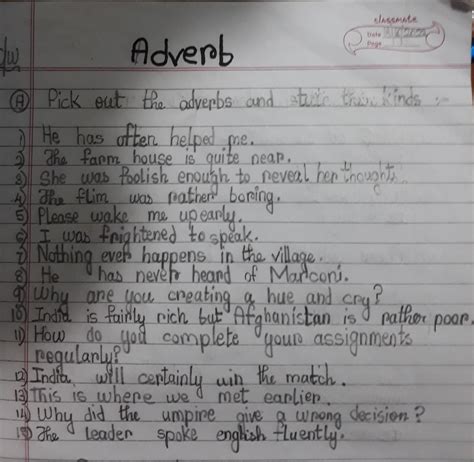 classmate
Date
Page
c/w
Adverb
(A) Pick out the adverbs and state their kinds :-
1) He has often helped me.
2) The farm house is quite near.
3) She was foolish enough to reveal her thoughts
4) The flim was rather boring.
5) Please wake me up early.
6) I was frightened to speak.
7) Nothing ever happens in the village.
8) He has never heard of Marconi.
9) Why are you creating a hue and cry?
10) India is fairly rich but Afghanistan is rather poor.
11) How do you complete your assignments
regularly?
12) India will certainly win the match.
13) This is where we met earlier.
14) Why did the umpire give a wrong decision?
15) The leader spoke english fluently.